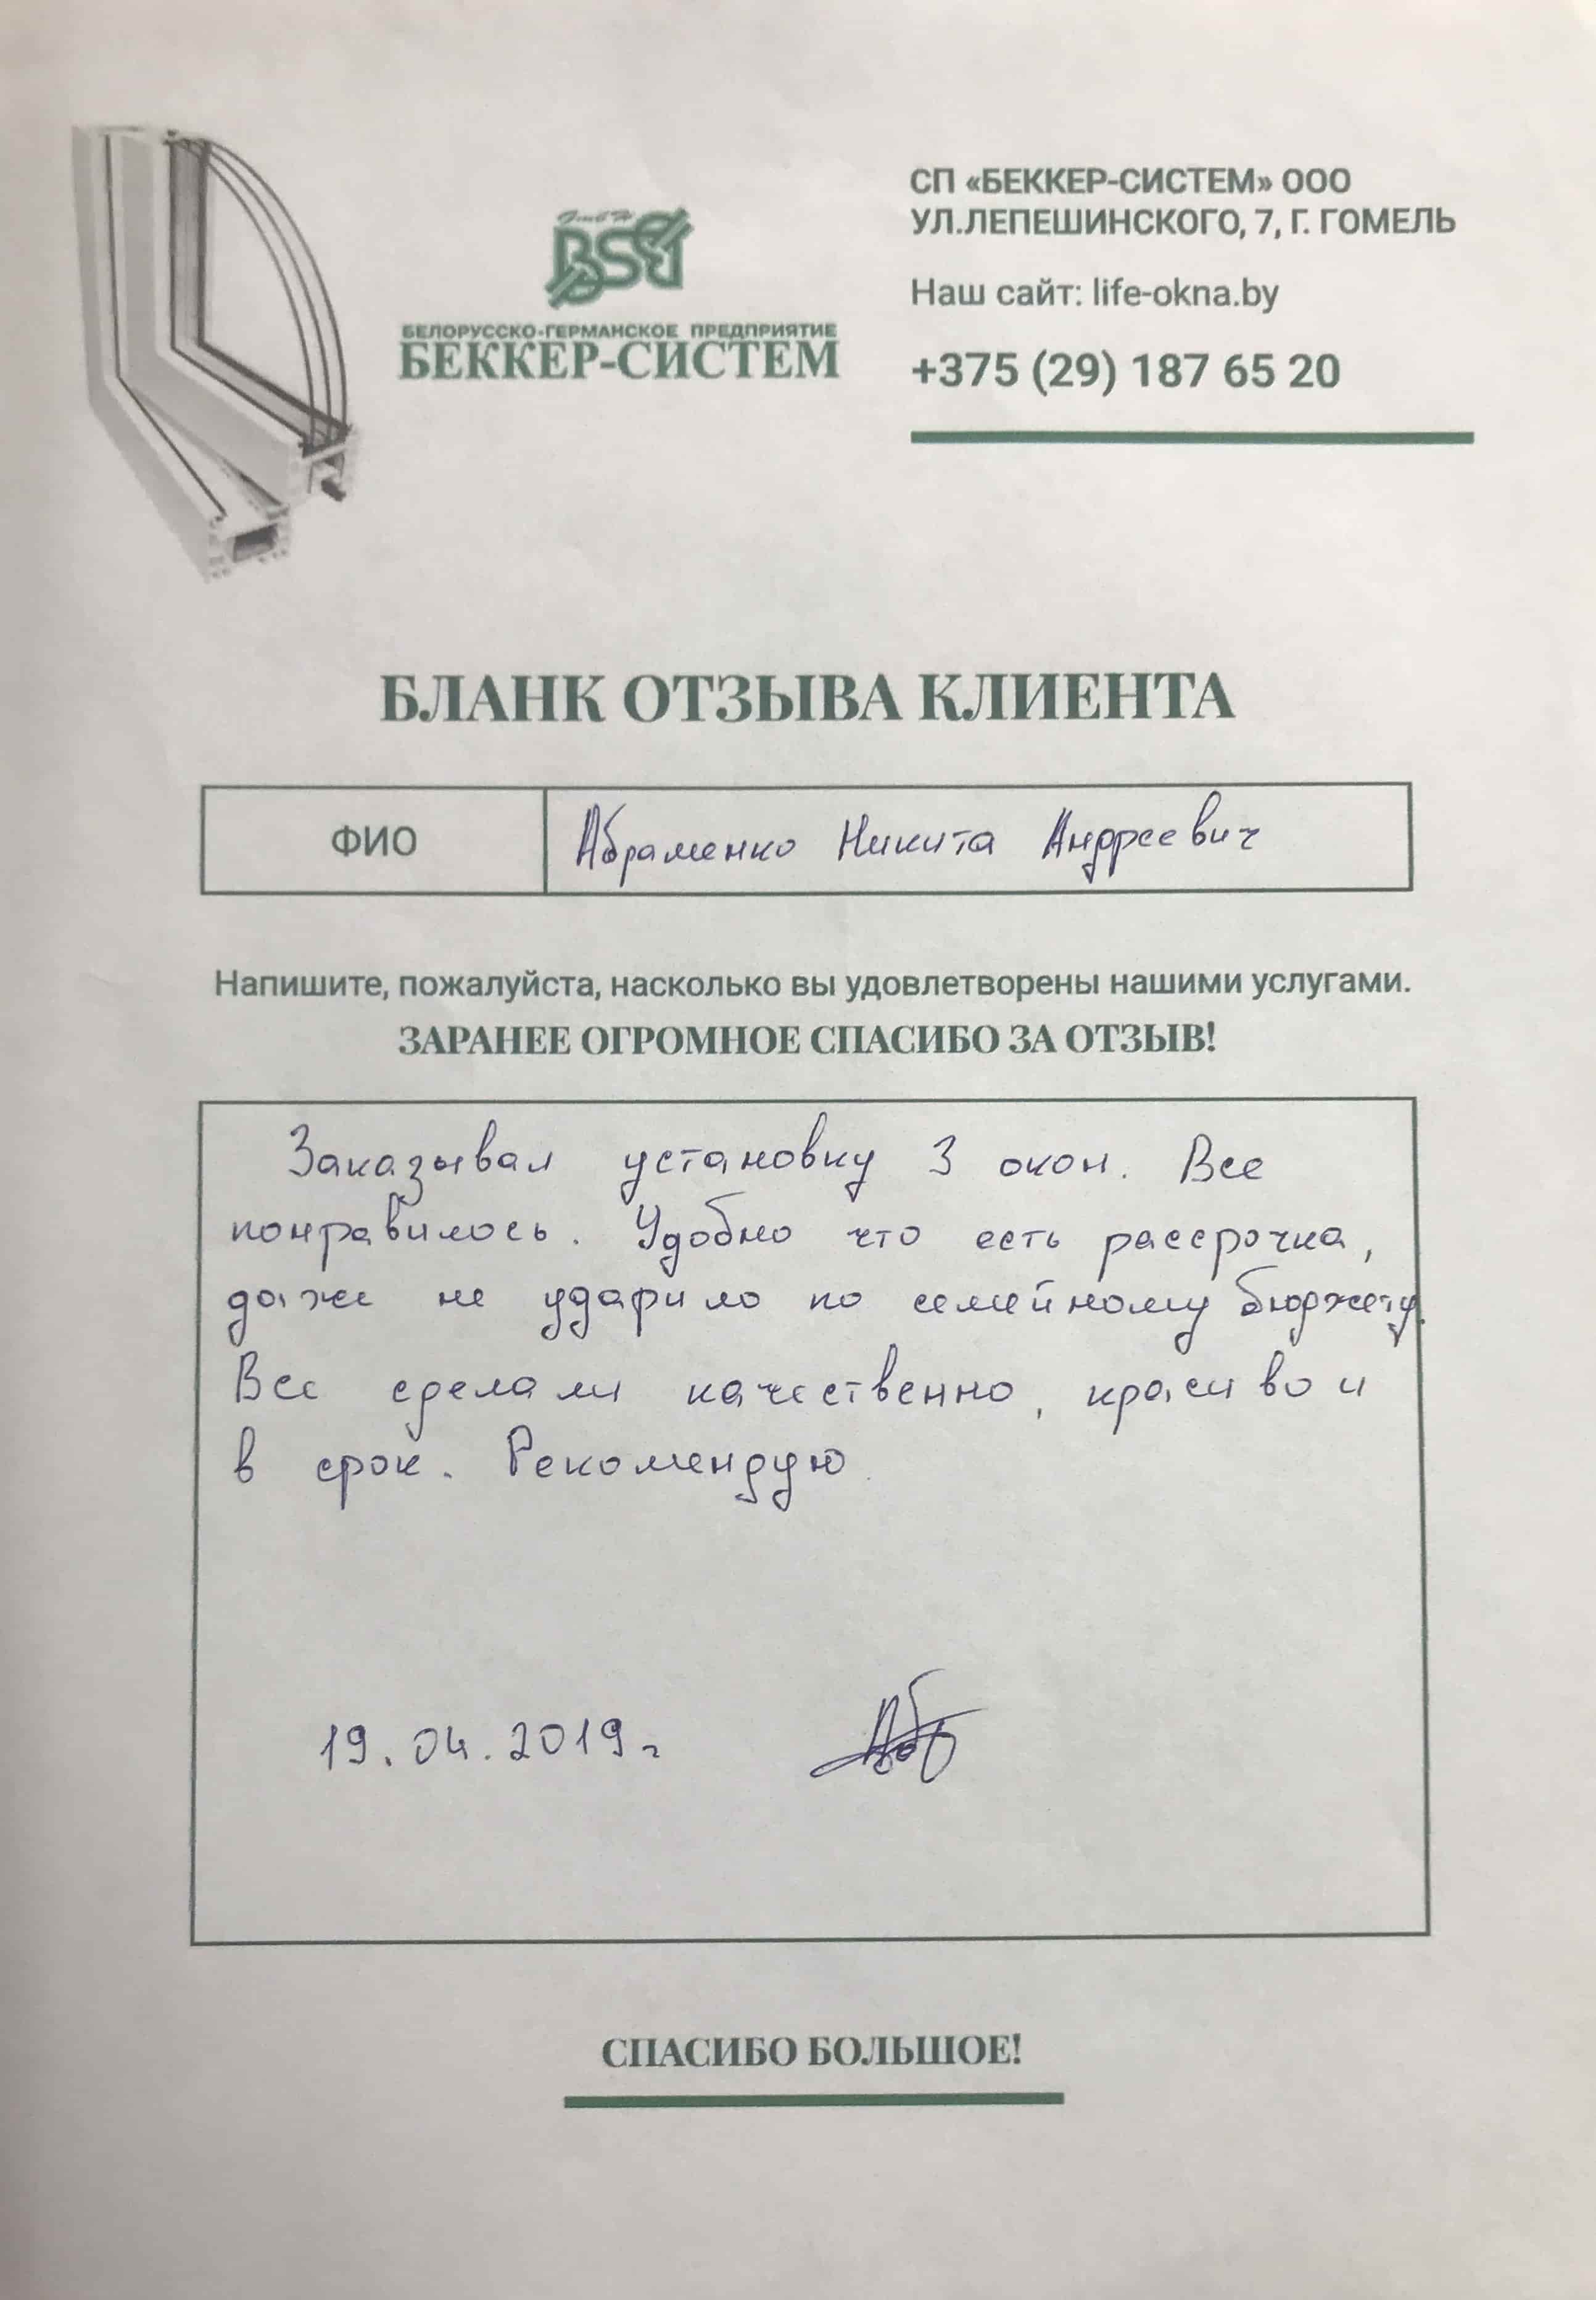 СП «БЕККЕР-СИСТЕМ» ООО
УЛ.ЛЕПЕШИНСКОГО, 7, Г. ГОМЕЛЬ
Наш сайт: life-okna.by
+375 (29) 187 65 20
BSB
БЕЛОРУССКО-ГЕРМАНСКОЕ ПРЕДПРИЯТИЕ
БЕККЕР-СИСТЕМ
БЛАНК ОТЗЫВА КЛИЕНТА
ФИО Абраменко Никита Андреевич
Напишите, пожалуйста, насколько вы удовлетворены нашими услугами.
ЗАРАНЕЕ ОГРОМНОЕ СПАСИБО ЗА ОТЗЫВ!
Заказывал установку 3 окон. Все
понравилось. Удобно что есть рассрочка,
даже не ударило по семейному бюджету.
Все сделали качественно, красиво и
в срок. Рекомендую.
19.04.2019г
СПАСИБО БОЛЬШОЕ!